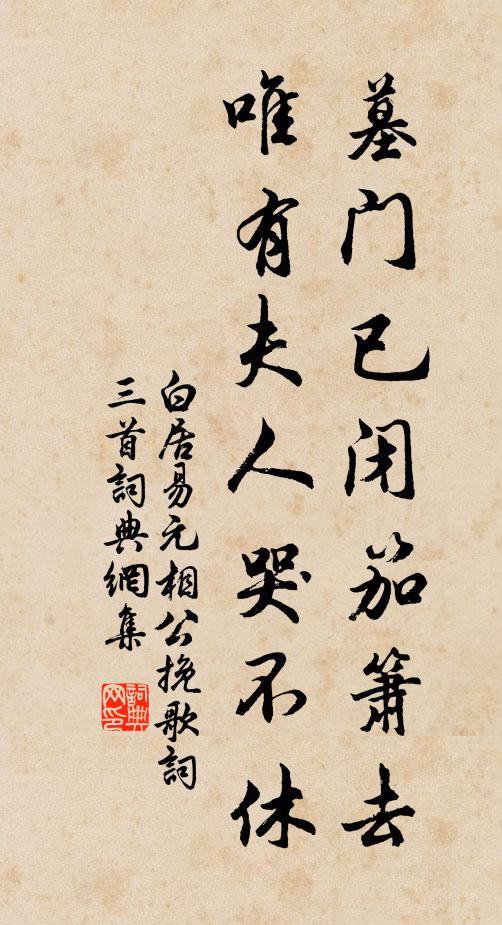 墓门已闭笳箫去
唯有夫人哭不休
白居易元相公挽歌詞
三首詞典網集
詞典
网印